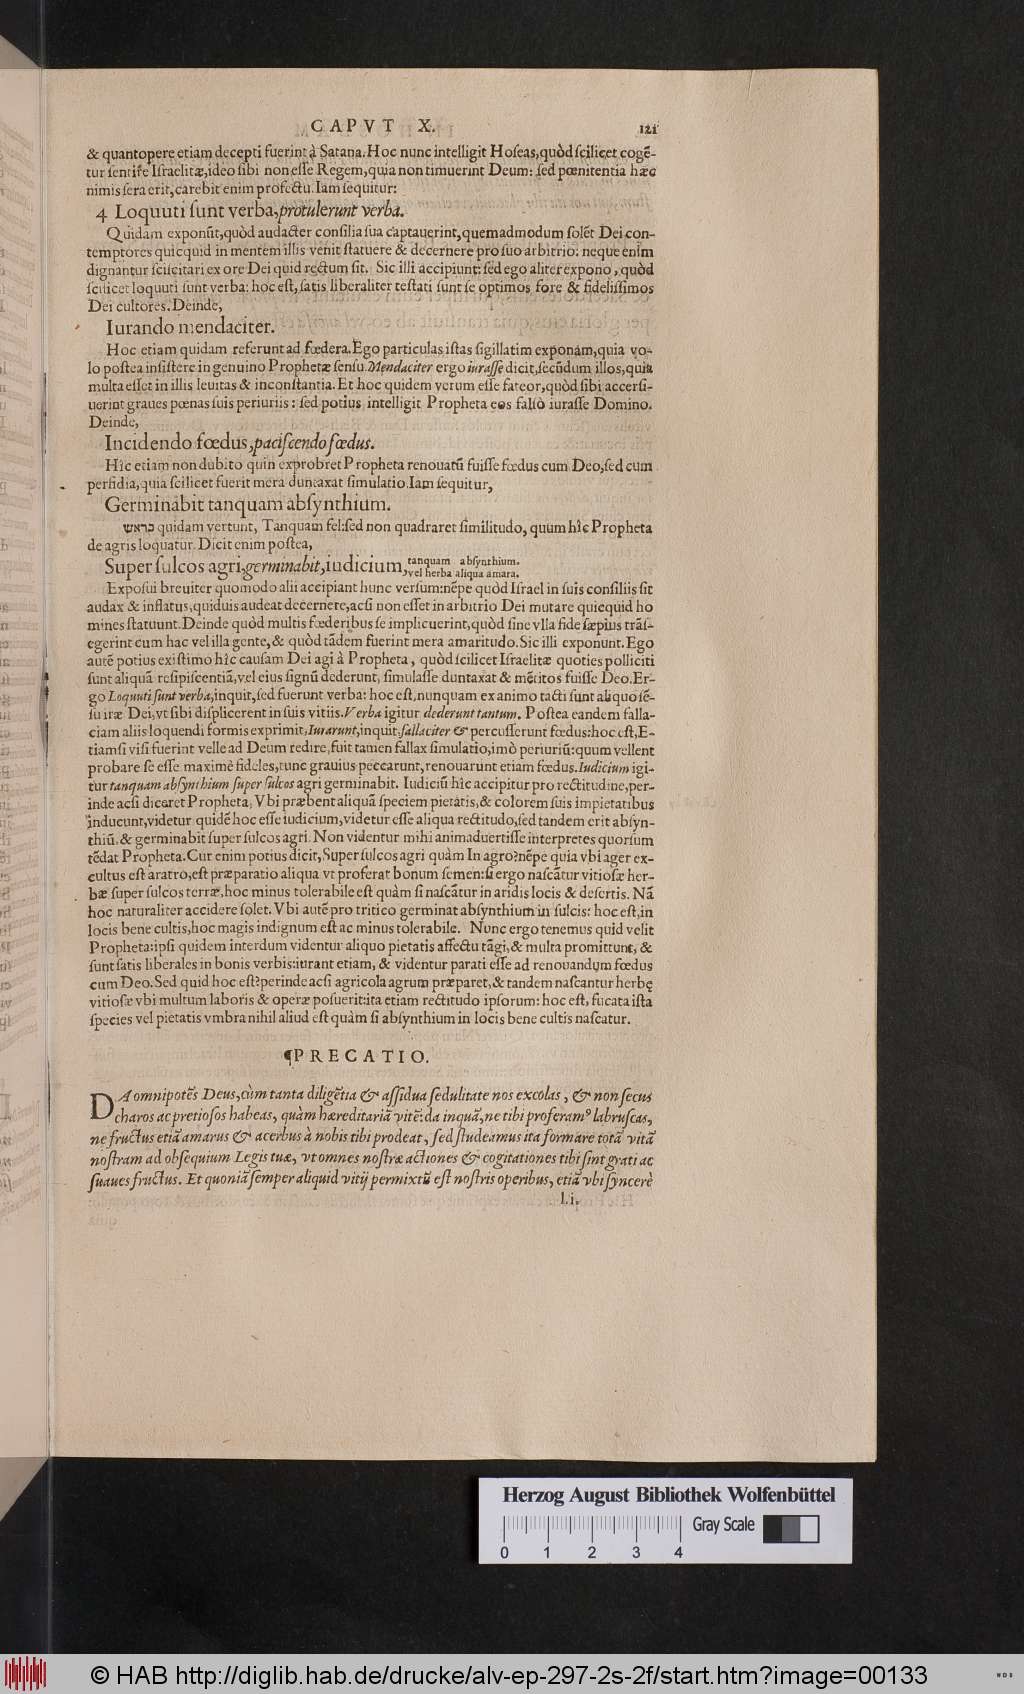 CAPVT X. 121
& quantopere etiam decepti fuerint à Satana. Hoc nunc intelligit Hoſeas, quòd ſcilicet cogẽ-
tur ſentire Iſraelitæ, ideo ſibi non eſſe Regem, quia non timuerint Deum: ſed pœnitentia hæc
nimis ſera erit, carebit enim profectu. Iam ſequitur:
4 Loquuti ſunt verba, protulerunt verba.
Quidam exponũt, quòd audacter conſilia ſua captauerint, quemadmodum ſolẽt Dei con-
temptores quicquid in mentem illis venit ſtatuere & decernere pro ſuo arbitrio: neque enim
dignantur ſciſcitari ex ore Dei quid rectum ſit. Sic illi accipiunt: ſed ego aliter expono, quòd
ſcilicet loquuti ſunt verba: hoc eſt, ſatis liberaliter teſtati ſunt ſe optimos fore & fideliſſimos
Dei cultores. Deinde,
Iurando mendaciter.
Hoc etiam quidam referunt ad fœdera. Ego particulas iſtas ſigillatim exponam, quia vo-
lo poſtea inſiſtere in genuino Prophetæ ſenſu. Mendaciter ergo iuraſſe dicit, ſecũdum illos, quia
multa eſſet in illis leuitas & inconſtantia. Et hoc quidem verum eſſe fateor, quòd ſibi accerſi-
uerint graues pœnas ſuis periuriis: ſed potius intelligit Propheta eos falſò iuraſſe Domino.
Deinde,
Incidendo fœdus, paciſcendo fœdus.
Hîc etiam non dubito quin exprobret Propheta renouatũ fuiſſe fœdus cum Deo, ſed cum
perfidia, quia ſcilicet fuerit mera duntaxat ſimulatio. Iam ſequitur,
Germinabit tanquam abſynthium.
כראש quidam vertunt, Tanquam fel: ſed non quadraret ſimilitudo, quum hîc Propheta
de agris loquatur. Dicit enim poſtea,
Super ſulcos agri, germinabit, iudicium, tanquam abſynthium.
vel herba aliqua amara.
Expoſui breuiter quomodo alii accipiant hunc verſum: nẽpe quòd Iſrael in ſuis conſiliis ſit
audax & inflatus, quiduis audeat decernere, acſi non eſſet in arbitrio Dei mutare quicquid ho
mines ſtatuunt. Deinde quòd multis fœderibus ſe implicuerint, quòd ſine vlla fide ſæpius trãſ-
egerint cum hac vel illa gente, & quòd tãdem fuerint mera amaritudo. Sic illi exponunt. Ego
autẽ potius exiſtimo hîc cauſam Dei agi à Propheta, quòd ſcilicet Iſraelitæ quoties polliciti
ſunt aliquã reſipiſcentiã, vel eius ſignũ dederunt, ſimulaſſe duntaxat & mẽtitos fuiſſe Deo. Er-
go Loquuti ſunt verba, inquit, ſed fuerunt verba: hoc eſt, nunquam ex animo tacti ſunt aliquo ſẽ-
ſu iræ Dei, vt ſibi diſplicerent in ſuis vitiis. Verba igitur dederunt tantum. Poſtea eandem falla-
ciam aliis loquendi formis exprimit, Iurarunt, inquit, fallaciter & percuſſerunt fœdus: hoc eſt, E-
tiamſi viſi fuerint velle ad Deum redire, fuit tamen fallax ſimulatio, imò periuriũ: quum vellent
probare ſe eſſe maximè fideles, tunc grauius peccarunt, renouarunt etiam fœdus. Iudicium igi-
tur tanquam abſynthium ſuper ſulcos agri germinabit. Iudiciũ hîc accipitur pro rectitudine, per-
inde acſi diceret Propheta, Vbi præbent aliquã ſpeciem pietatis, & colorem ſuis impietatibus
inducunt, videtur quidẽ hoc eſſe iudicium, videtur eſſe aliqua rectitudo, ſed tandem erit abſyn-
thiũ, & germinabit ſuper ſulcos agri. Non videntur mihi animaduertiſſe interpretes quorſum
tẽdat Propheta. Cur enim potius dicit, Super ſulcos agri quàm In agro? nẽpe quia vbi ager ex-
cultus eſt aratro, eſt præparatio aliqua vt proferat bonum ſemen: ſi ergo naſcãtur vitioſæ her-
bæ ſuper ſulcos terræ, hoc minus tolerabile eſt quàm ſi naſcãtur in aridis locis & deſertis. Nã
hoc naturaliter accidere ſolet. Vbi autẽ pro tritico germinat abſynthium in ſulcis: hoc eſt, in
locis bene cultis, hoc magis indignum eſt ac minus tolerabile. Nunc ergo tenemus quid velit
Propheta: ipſi quidem interdum videntur aliquo pietatis affectu tãgi, & multa promittunt, &
ſunt ſatis liberales in bonis verbis: iurant etiam, & videntur parati eſſe ad renouandum fœdus
cum Deo. Sed quid hoc eſt? perinde acſi agricola agrum præparet, & tandem naſcantur herbę
vitioſæ vbi multum laboris & operæ poſuerit: ita etiam rectitudo ipſorum: hoc eſt, fucata iſta
ſpecies vel pietatis vmbra nihil aliud eſt quàm ſi abſynthium in locis bene cultis naſcatur.
¶PRECATIO.
DA omnipotẽs Deus, cùm tanta diligẽtia & aſſidua ſedulitate nos excolas, & non ſecus
charos ac pretioſos habeas, quàm hæreditariã vitẽ: da inquã, ne tibi proferamꝰ labruſcas,
ne fructus etiã amarus & acerbus à nobis tibi prodeat, ſed ſtudeamus ita formare totã vitã
noſtram ad obſequium Legis tuæ, vt omnes noſtræ actiones & cogitationes tibi ſint grati ac
ſuaues fructus. Et quoniã ſemper aliquid vitij permixtũ eſt noſtris operibus, etiã vbi ſyncerè
l.i.
Herzog August Bibliothek Wolfenbüttel
Gray Scale
0 1 2 3 4
© HAB http://diglib.hab.de/drucke/alv-ep-297-2s-2f/start.htm?image=00133